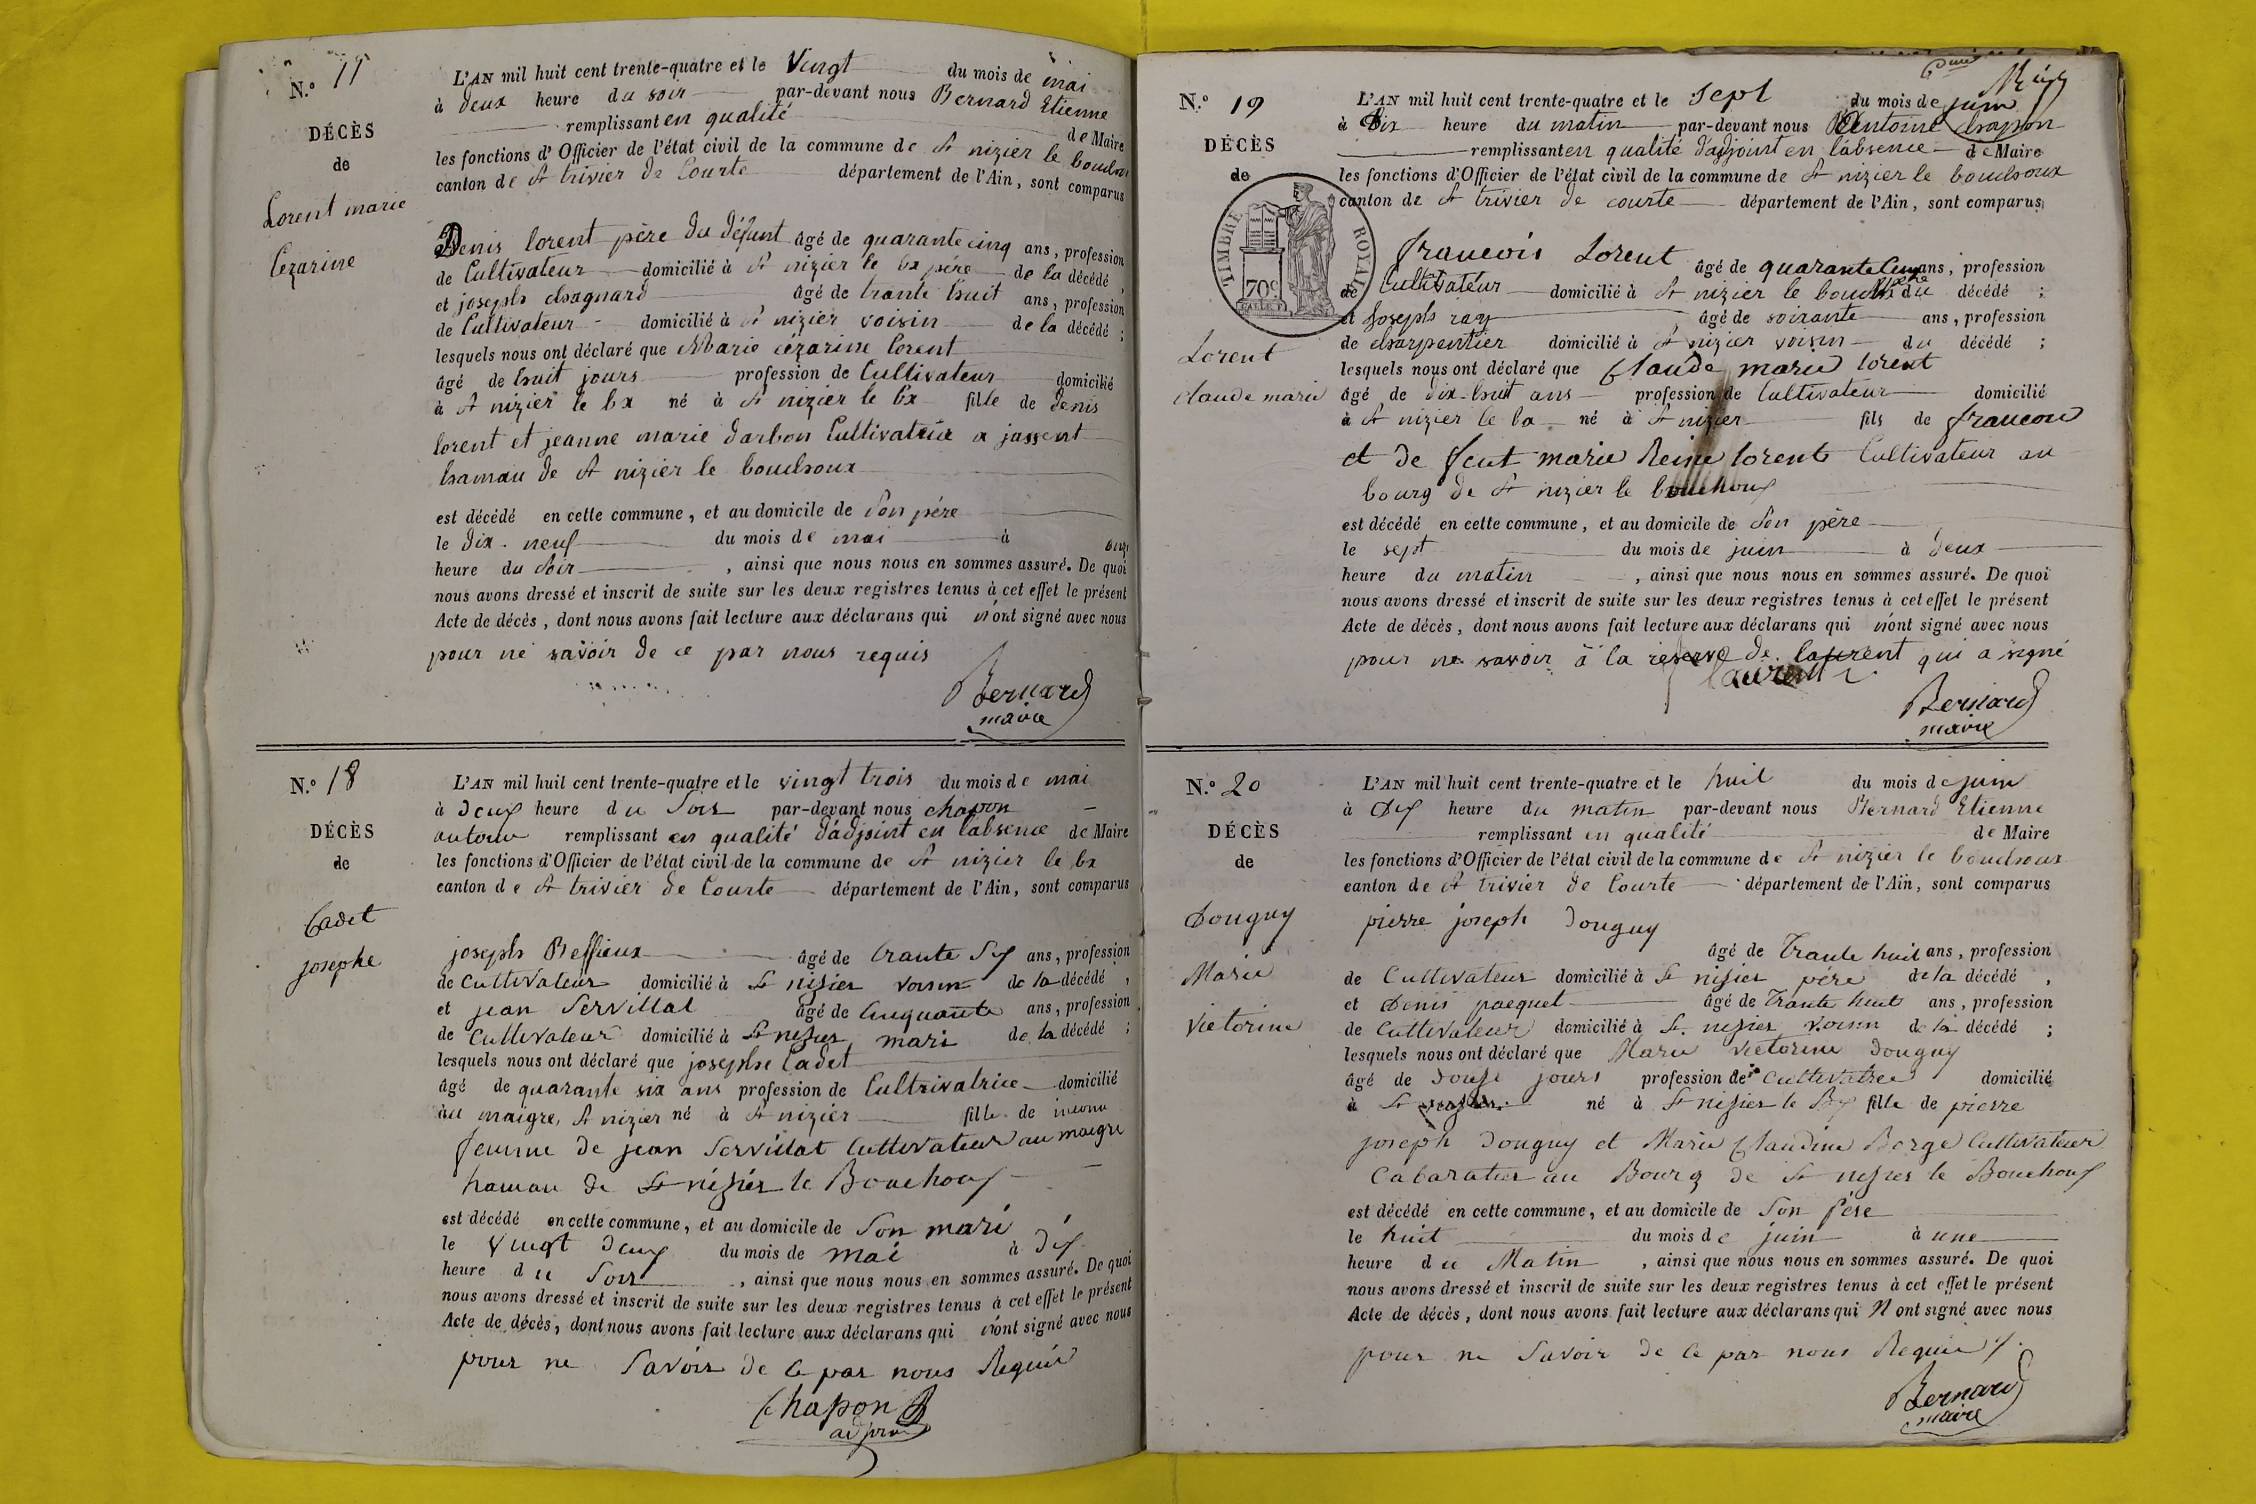 N.° 17
DÉCÈS
de
Lorent marie
Cezarine
L'AN mil huit cent trente-quatre et le Vingt du mois de mai
à deux heure du soir par-devant nous Bernard Etienne
remplissant en qualité de Maire
les fonctions d'Officier de l'état civil de la commune de St nizier le bouchoux
canton de St trivier de Courte département de l'Ain, sont comparus
Denis lorent père du défunt âgé de quarante cinq ans, profession
de Cultivateur domicilié à St nizier le bx père de la décédé ,
et joseph chagnard âgé de trante huit ans, profession
de Cultivateur domicilié à St nizier voisin de la décédé ;
lesquels nous ont déclaré que Marie cézarine lorent
âgé de huit jours profession de Cultivateur domicilié
à St nizier le bx né à St nizier le bx fille de denis
lorent et jeanne marie darbon Cultivateur a jassent
hamau de St nizier le bouchoux
est décédé en cette commune, et au domicile de son père
le dix-neuf du mois de mai à onze
heure du soir , ainsi que nous nous en sommes assuré. De quoi
nous avons dressé et inscrit de suite sur les deux registres tenus à cet effet le présent
Acte de décès, dont nous avons fait lecture aux déclarans qui n'ont signé avec nous
pour ne savoir de ce par nous requis
Bernard
maire
N.° 18
DÉCÈS
de
Cadet
josephe
L'AN mil huit cent trente-quatre et le vingt trois du mois de mai
à deux heure du soir par-devant nous chapon
antoine remplissant en qualité d'adjoint en l'absence de Maire
les fonctions d'Officier de l'état civil de la commune de St nizier le bx
canton de St trivier de Courte département de l'Ain, sont comparus
joseph Beffieux âgé de trante six ans, profession
de Cultivateur domicilié à St nizier voisin de la décédé ,
et jean Servillat âgé de Cinquante ans, profession
de Cultivateur domicilié à St nizier mari de la décédé ;
lesquels nous ont déclaré que josephe Cadet
âgé de quarante six ans profession de Cultrivatrice domicilié
au maigre, St nizier né à St nizier fille de inconu
femme de jean Servillat Cultivateur au maigre
hamau de St nizier le Bouchoux
est décédé en cette commune, et au domicile de Son mari
le vingt deux du mois de mai à dix
heure du Soir , ainsi que nous nous en sommes assuré. De quoi
nous avons dressé et inscrit de suite sur les deux registres tenus à cet effet le présent
Acte de décès, dont nous avons fait lecture aux déclarans qui n'ont signé avec nous
pour ne Savoir de ce par nous Requis
Chapon
adjoint
N.° 19
DÉCÈS
de
TIMBRE ROYAL
70c
Lorent
claude marie
L'AN mil huit cent trente-quatre et le sept du mois de juin
à dix heure du matin par-devant nous Antoine chapon
remplissant en qualité d'adjoint en l'absence de Maire
les fonctions d'Officier de l'état civil de la commune de St nizier le bouchoux
canton de St trivier de courte département de l'Ain, sont comparus
francois Lorent âgé de quarante cinq ans, profession
de Cultivateur domicilié à St nizier le bouch père du décédé ;
et joseph ray âgé de soixante ans, profession
de charpentier domicilié à St nizier voisin du décédé ;
lesquels nous ont déclaré que Claude marie lorent
âgé de dix-huit ans profession de Cultivateur domicilié
à St nizier le bx né à St nizier fils de francois
et de feut marie Reine lorent Cultivateur au
bourg de St nizier le bouchoux
est décédé en cette commune, et au domicile de Son père
le sept du mois de juin à deux
heure du matin , ainsi que nous nous en sommes assuré. De quoi
nous avons dressé et inscrit de suite sur les deux registres tenus à cet effet le présent
Acte de décès, dont nous avons fait lecture aux déclarans qui n'ont signé avec nous
pour ne savoir à la réserve de laurent qui a signé
f laurent
Bernard
maire
N.° 20
DÉCÈS
de
Douguy
Marie
Victorine
L'AN mil huit cent trente-quatre et le huit du mois de juin
à Dix heure du matin par-devant nous Bernard Etienne
remplissant en qualité de Maire
les fonctions d'Officier de l'état civil de la commune de St nizier le bouchoux
canton de St trivier de Courte département de l'Ain, sont comparus
pierre joseph Douguy
âgé de Trante huit ans, profession
de Cultivateur domicilié à St nisier père de la décédé ,
et Denis pacquet âgé de Trante huit ans, profession
de Cultivateur domicilié à St nisier voisin de la décédé ;
lesquels nous ont déclaré que Marie victorine Douguy
âgé de Douze jours profession de Cultivatrice domicilié
à St nisier né à St nisier le Bx fille de pierre
joseph Douguy et Marie Claudine Borge Cultivateur
Cabaratier au Bourg de St nisier le Bouchoux
est décédé en cette commune, et au domicile de Son père
le huit du mois de juin à une
heure du Matin , ainsi que nous nous en sommes assuré. De quoi
nous avons dressé et inscrit de suite sur les deux registres tenus à cet effet le présent
Acte de décès, dont nous avons fait lecture aux déclarans qui N ont signé avec nous
pour ne Savoir de ce par nous Requis
Bernard
maire